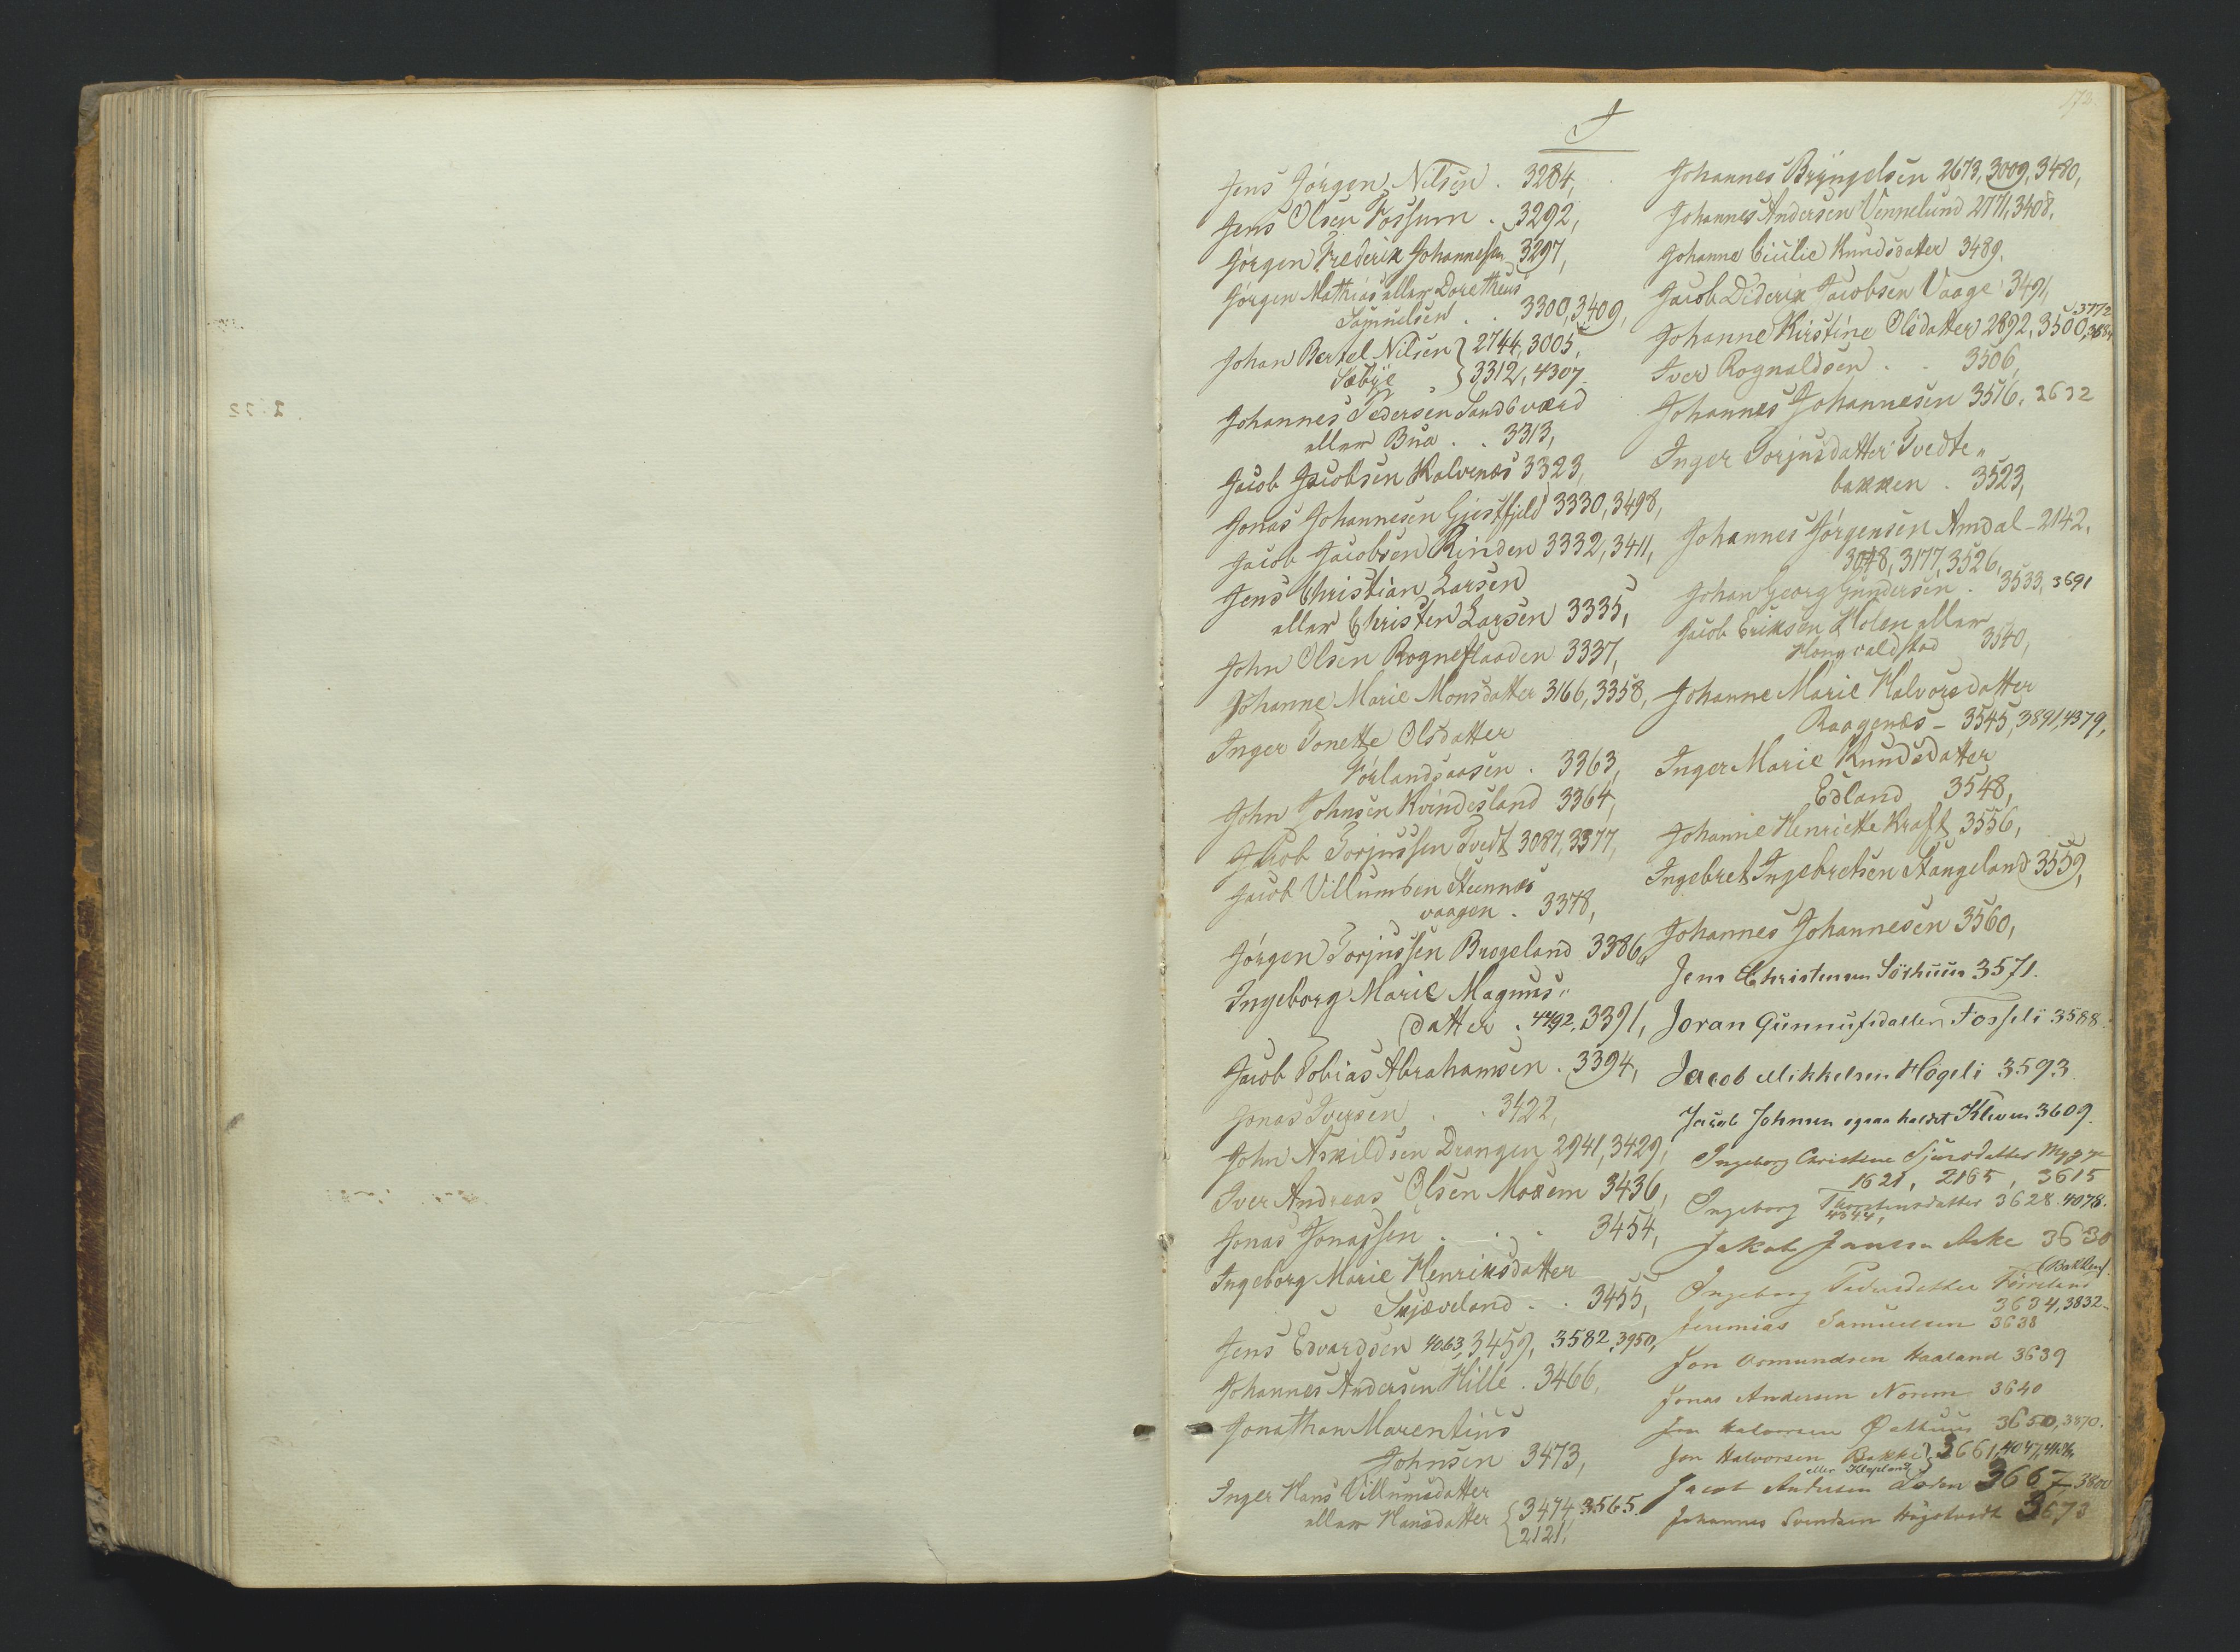 172.
J
Jens Jörgen Nilsen . 3284,
Jens Olsen Fossum . 3292,
Jörgen Frederik Johannesen 3297,
Jörgen Mathias eller Doretheus
Samuelsen . . 3300, 3409,
Johan Bertel Nilsen } 2744, 3005,
Sæbye } 3312, 4307.
Johannes Pedersen Sandsværd
eller Bua . . 3313,
Jacob Jacobsen Kalvenæs 3323,
Jonas Johannesen Gjestfjeld 3330, 3498,
Jacob Jacobsen Rinden 3332, 3411,
Jens Christian Larsen
eller Christen Larsen 3335,
John Olsen Rogneflaaden 3337,
Johanne Marie Monsdatter 3166, 3358,
Inger Tonette Olsdatter
Förlandsaasen . 3363,
John Johnsen Kvindesland 3364,
Jacob Torjussen Tvedt 3087, 3377,
Jacob Villumsen Steennæs
vaagen . 3378,
Jörgen Torjussen Brogeland 3386,
Ingeborg Marie Magnus"
datter . 4492, 3391,
Jacob Tobias Abrahamsen . 3394,
Jonas Iversen . . 3422,
John Askildsen Drangen 2941, 3429,
Iver Andreas Olsen Moxem 3436,
Jonas Jonassen . . . 3454,
Ingeborg Marie Henriksdatter
Skjæveland . . 3455,
Jens Edvardsen 4063, 3459, 3582, 3950,
Johannes Andersen Hille . 3466,
Jonathan Marentius
Johnsen 3473,
Inger Hans Villumsdatter
eller Hansdatter { 3474, 3565.
2121,
Johannes Bryngelsen 2673, 3009, 3480,
Johannes Andersen Vennelund 2771, 3408,
Johanne Cicilie Knudsdatter 3489.
Jacob Diderik Jacobsen Vaage 3491,
3772
Johanne Kirstine Olsdatter 2892, 3500,
Iver Rognaldsen . . 3506,
Johannes Johannesen 3516, 3632
Inger Torjusdatter Tvedte"
bakken . 3523,
Johannes Jörgensen Amdal - 2142,
3048, 3177, 3526,
Johan Georg Gundersen . 3533, 3691
Jacob Eriksen Holen eller
Hongvaldstad 3540,
Johanne Marie Halvorsdatter
Raagenæs - 3545, 3891, 4379,
Inger Marie Knudsdatter
Edland 3548,
Johanne Henriette Kraft 3556,
Ingebret Ingebretsen Stangeland 3559,
Johannes Johannesen 3560,
Jens Christensen Sörhuus 3571.
Joran Gunnufsdatter Fosseli 3588.
Jacob Mikkelsen Högeli 3593
Jacob Johnsen ogsaa kaldet Kleven 3609.
Ingeborg Christine Sjursdatter
1621, 2165, 3615
Ingeborg Thorstensdatter 3628. 4078.
4344,
Jakob Jansen Aske 3630
(Bakken)
Ingeborg Pedersdatter Förreland
3634, 3832.
Jeremias Samuelsen 3638
Jon Osmundsen Haaland 3639
Jonas Andersen Norem 3640
Jon Halvorsen 3650, 3870.
Jon Halvorsen Bakke } 3661, 4047,
eller Klepland
Jacob Andersen Aasen 3667, 3800
Johannes Svendsen 3673